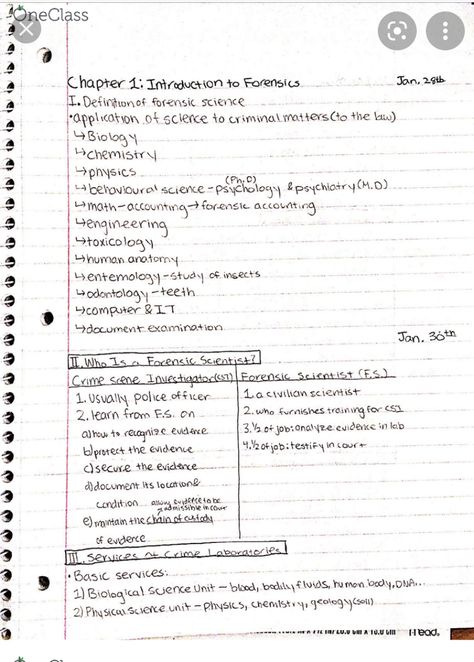 OneClass
Chapter 1: Introduction to Forensics Jan. 28th
I. Definition of forensic science
•application of science to criminal matters (to the law)
↳Biology
↳chemistry
↳physics
(Ph.D)
↳behavioural science - psychology & psychiatry (M.D)
↳math-accounting→forensic accounting
↳engineering
↳toxicology
↳human anatomy
↳entemology-study of insects
↳odontology-teeth
↳computer & IT
↳document examination
Jan. 30th
II. Who Is a Forensic Scientist?
Crime Scene Investigator(CSI) Forensic Scientist (F.S.)
1. usually police officer 1. a civilian scientist
2. learn from F.S. on 2. who furnishes training for CSI
a)how to recognize evidence 3. ½ of job: analyze evidence in lab
b)protect the evidence 4. ½ of job: testify in court
c)secure the evidence
d)document its location &
condition allow evidence to be
→admissible in court
e)maintain the chain of custody
of evidence
III. Services of Crime Laboratories
•Basic services:
1) Biological Science Unit - blood, bodily fluids, human body, DNA...
2) Physical Science unit - physics, chemistry, geology (soil)